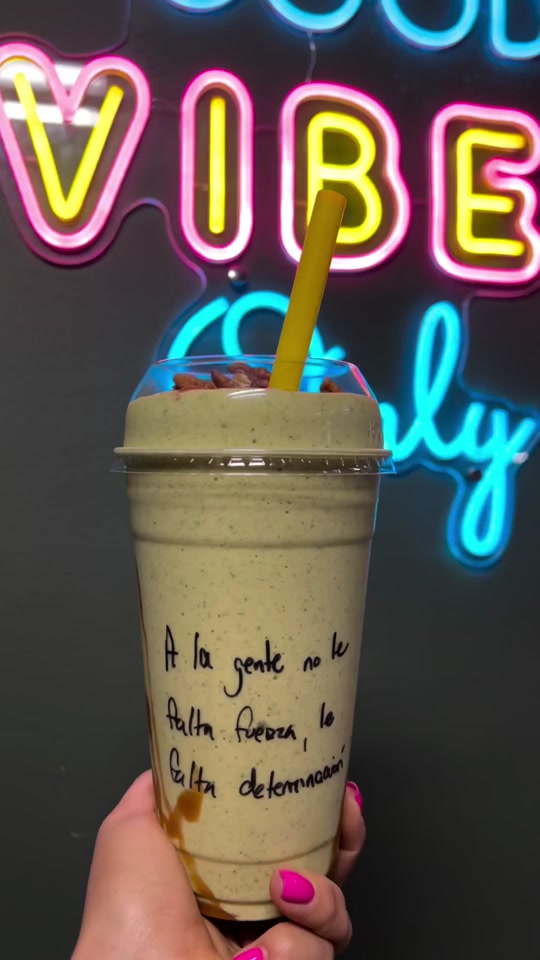 VIBE
Only
A la gente no le
falta fuerza, le
falta determinación